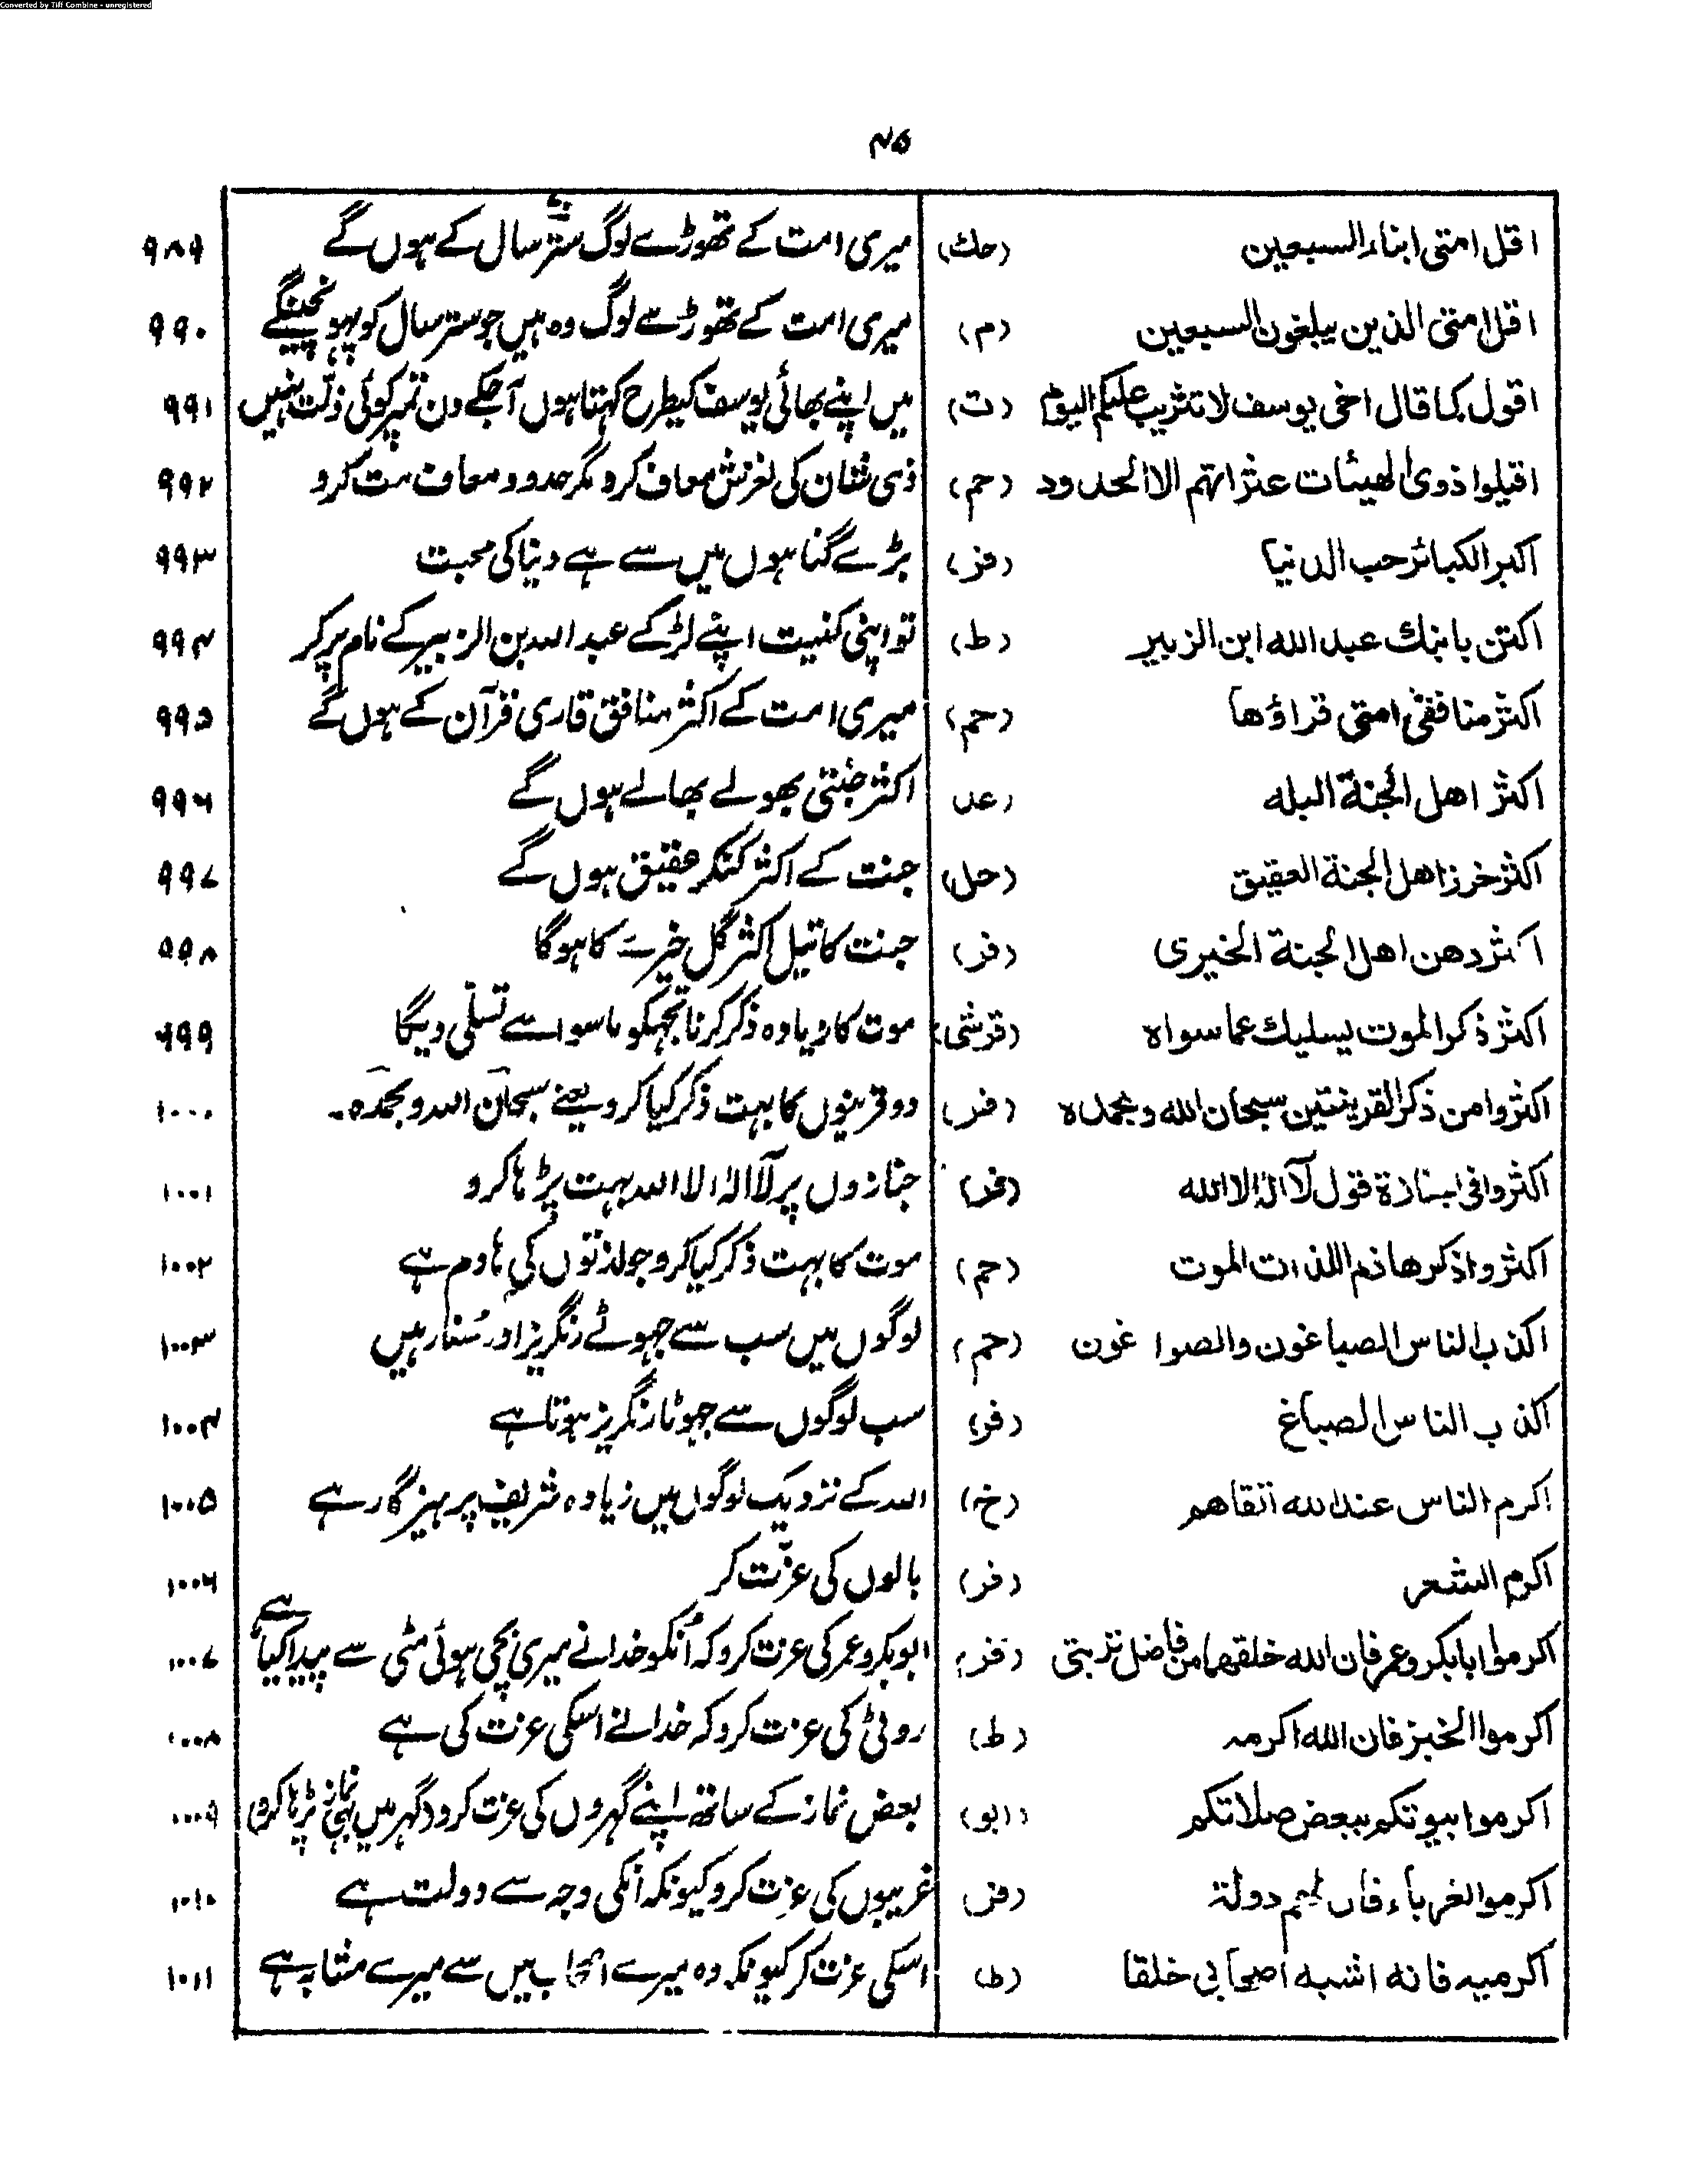 Converted by Tiff Combine - unregistered
۴۵
اقل امتی ابناء السبعین (حك) میری امت کے تھوڑے لوگ ستّر سال کے ہوں گے ۹۸۹
اقل امتی الذین یبلغون السبعین (م) میری امت کے تھوڑے لوگ وہ ہیں جو ستر سال کو پہونچینگے ۹۹۰
اقول کما قال اخی یوسف لا تثریب علیکم الیوم (ت) میں اپنے بھائی یوسف کیطرح کہتا ہوں آجکے دن تمپر کوئی ذلّت نہیں ۹۹۱
اقیلوا ذوی الھیئات عثراتھم الا الحدود (حم) ذی شان کی لغزش معاف کرو مگر حدود معاف مت کرو ۹۹۲
اکبر الکبائر حب الدنیا (فر) بڑے گناہوں میں سے ہے دنیا کی محبت ۹۹۳
اکتن بابنك عبد الله ابن الزبیر (ط) تو اپنی کنیت اپنے لڑکے عبد اللہ بن الزبیر کے نام پر کر ۹۹۴
اکثر منافقی امتی قراؤھا (حم) میری امت کے اکثر منافق قاری قرآن کے ہوں گے ۹۹۵
اکثر اھل الجنة البله (عد اکثر جنتی بھولے بھالے ہوں گے ۹۹۶
اکثر خرز اھل الجنة العقیق (حل) جنت کے اکثر کنکر عقیق ہوں گے ۹۹۷
اکثر دھن اھل الجنة الخیری (فر) جنت کا تیل اکثر گل خیرے کا ہوگا ۹۹۸
اکثر ذکر الموت یسلیك عما سواہ (قرشی) موت کا زیادہ ذکر کرنا تجھکو ماسوا سے تسلّی دیگا ۹۹۹
اکثروا من ذکر القرینتین سبحان الله وبحمدہ (فر) دو قرینوں کا بہت ذکر کیا کرو یعنے سبحان اللہ و بحمدہ۔ ۱۰۰۰
اکثروا فی الجنازة قول لآ الہ الا الله (فر) جنازوں پر لآ الہ الا اللہ بہت پڑہا کرو ۱۰۰۱
اکثروا ذکر ھاذم اللذات الموت (حم) موت کا بہت ذکر کیا کرو جو لذتوں کی ہادم ہے ۱۰۰۲
اکذب الناس الصباغون والصواغون (حم) لوگوں میں سب سے جہوٹے رنگریز اور سُنار ہیں ۱۰۰۳
اکذب الناس الصباغ (فر) سب لوگوں سے جہوٹا رنگریز ہوتا ہے ۱۰۰۴
اکرم الناس عند الله اتقاھم (خ) اللہ کے نزدیک لوگوں میں زیادہ شریف پرہیز گار ہے ۱۰۰۵
اکرم الشعر (فر) بالوں کی عزّت کر ۱۰۰۶
اکرموا ابابکر وعمر فان الله خلقھما من فاضل تربتی (فر) ابوبکر و عمر کی عزت کرو کہ اُنکو خدا نے میری بچی ہوئی مٹی سے پیدا کیا ہے ۱۰۰۷
اکرموا الخبز فان الله اکرمه (ط) روٹی کی عزت کرو کہ خدا نے اسکی عزت کی ہے ۱۰۰۸
اکرموا بیوتکم ببعض صلاتکم (ابو) بعض نماز کے ساتھ اپنے گہروں کی عزت کرو (گہر میں بہی نماز پڑہا کرو) ۱۰۰۹
اکرموا الغرباء فان لھم دولة (فر) غریبوں کی عزت کرو کیونکہ انکی وجہ سے دولت ہے ۱۰۱۰
اکرمیہ فانه اشبه اصحابی خلقا (ط) اسکی عزت کر کیونکہ وہ میرے اصحاب میں سے میرے مشابہ ہے ۱۰۱۱